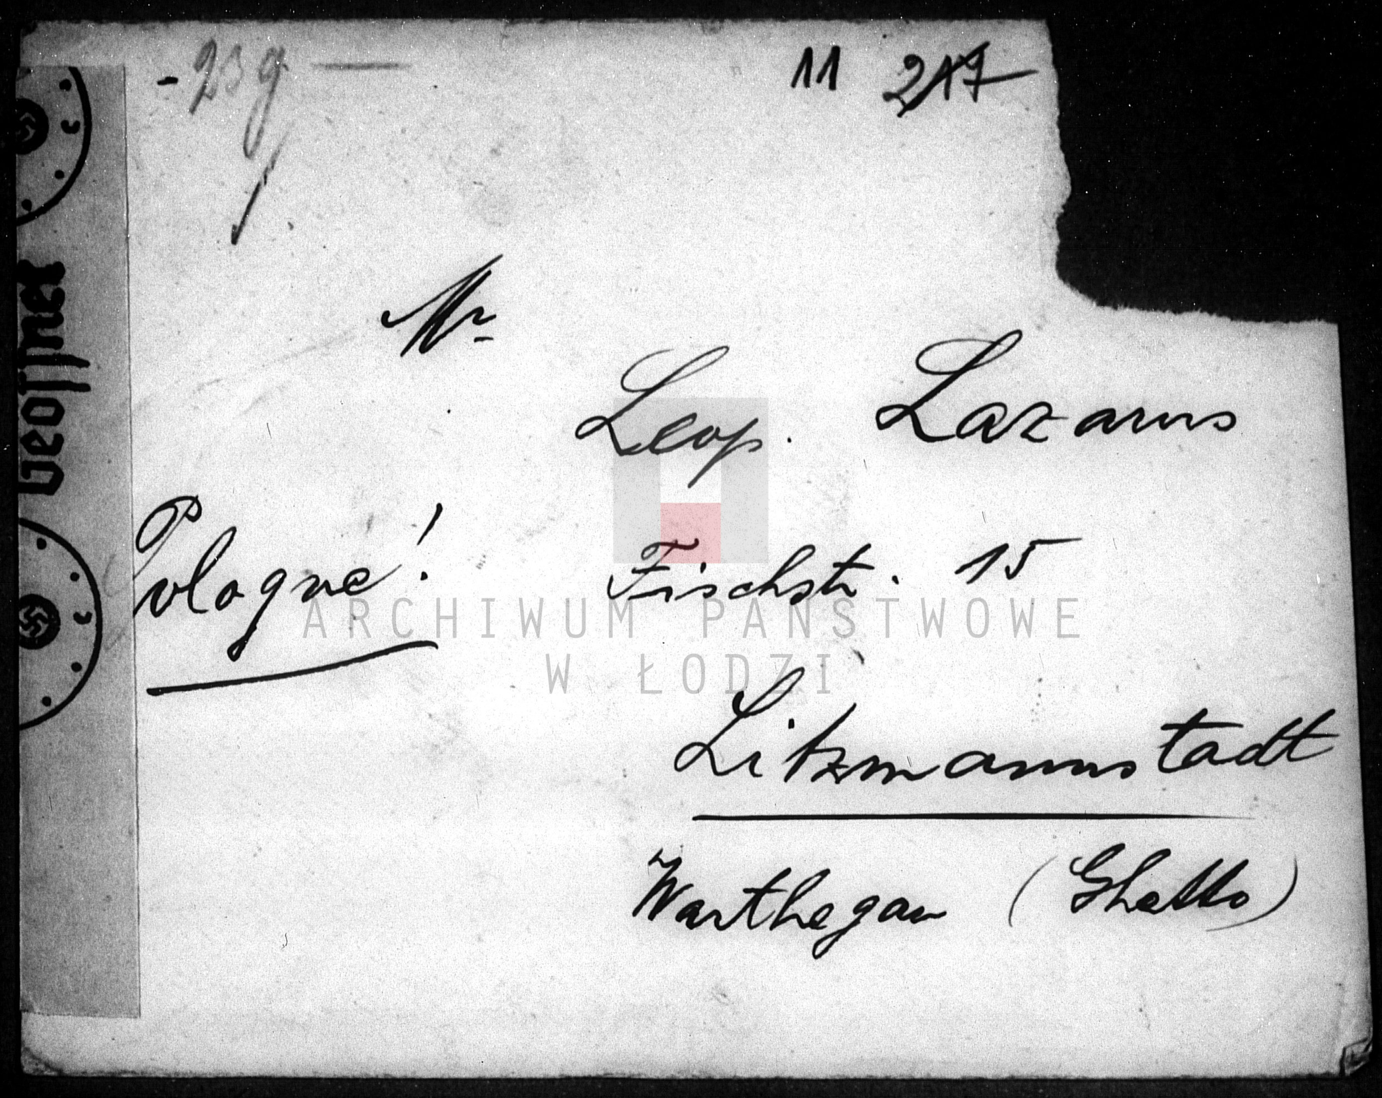 - 23 g —
11 217
Mr
Leop. Lazarus
Pologne!
Fischstr. 15
Litzmannstadt
Warthegau (Ghetto)
Geöffnet
c
c
ARCHIWUM PAŃSTWOWE
W ŁODZI